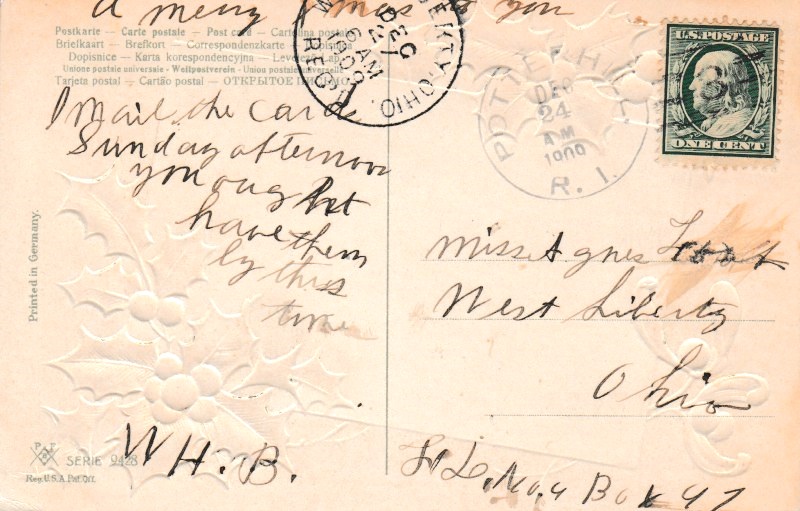 A merry to you
Postkarte — Carte postale — Post card — Cartolina postale
Briefkaart — Brefkort — Correspondenzkarte
Dopisnice — Karta korespondencyjna —
Union postale universelle — Weltpostverein — Union postale universelle
Tarjeta postal — Cartão postal — ОТКРЫТОЕ
I mail the card
Sunday afternoon
you ought
have them
by this
time
W H. B.
Printed in Germany.
SERIE 9428
Reg. U.S.A. Pat. Off.
OHIO
DEC
27
6 AM
1909
REC'D
POTTER HILL
DEC
24
AM
1909
R. I.
U.S. POSTAGE
ONE CENT
Miss Agnes
West Liberty
Ohio
No. 4 Box 47